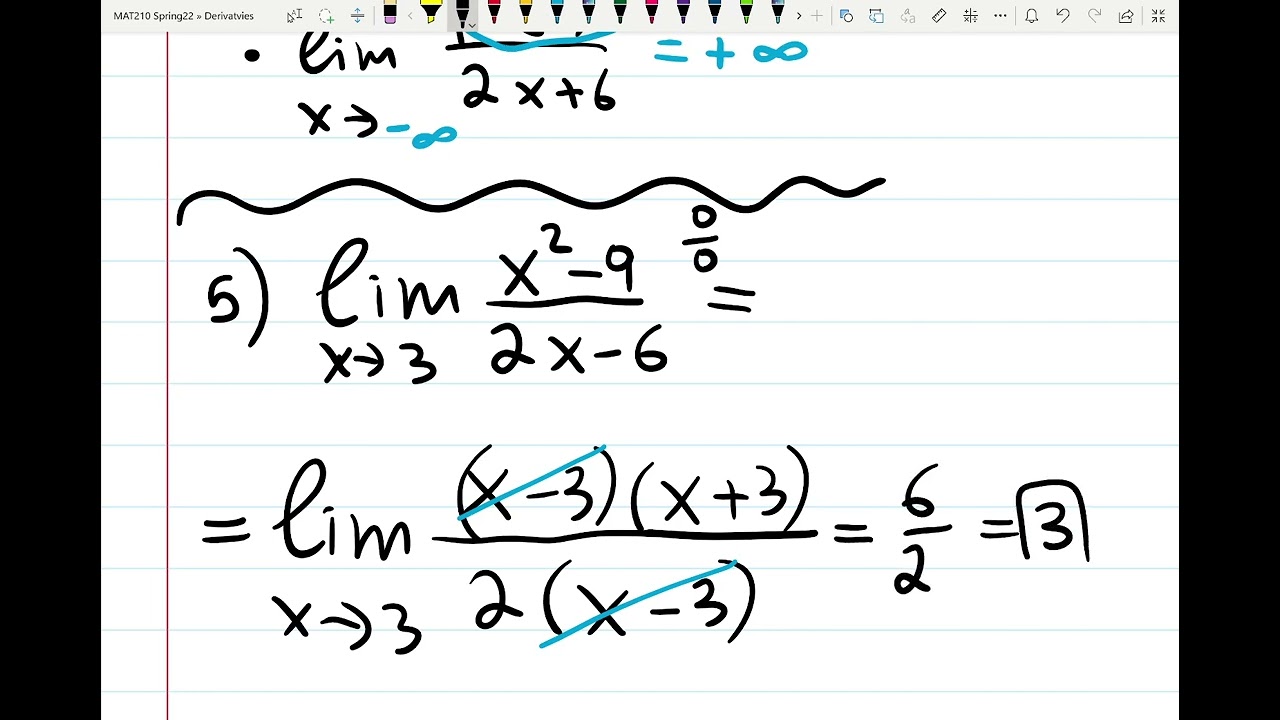 MAT210 Spring22 » Derivatvies
• lim / 2x+6 = +∞
x→-∞
5) lim x²-9 / 2x-6 0/0 =
x→3
= lim (x-3)(x+3) / 2(x-3) = 6/2 = 3
x→3